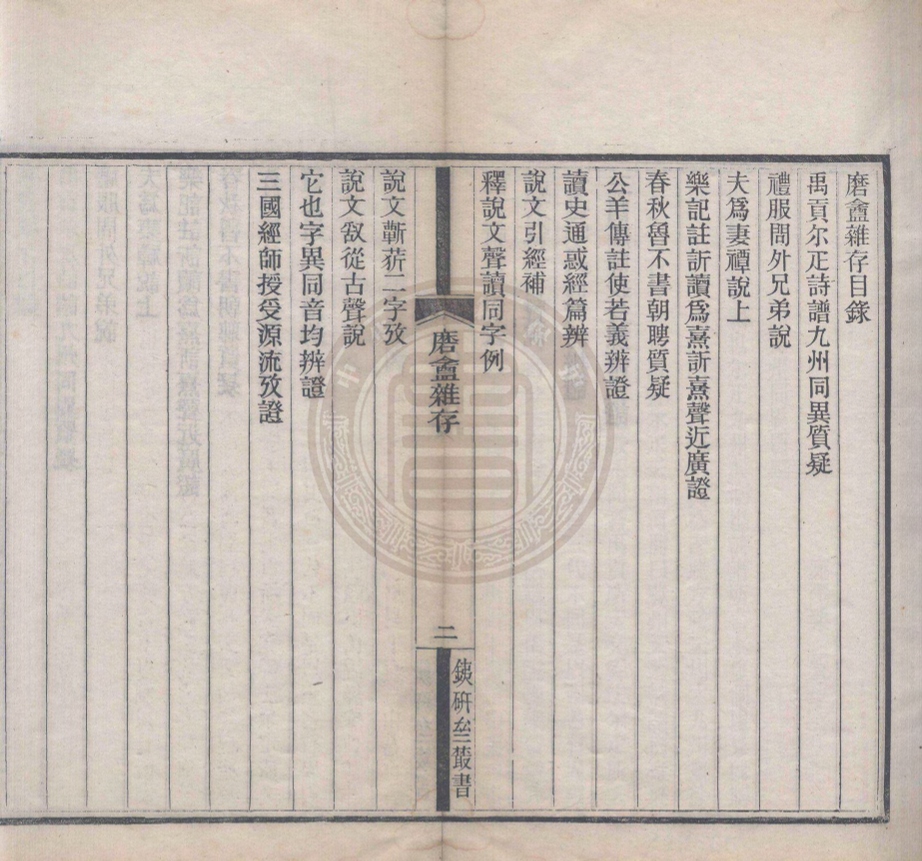 磨盦雜存目錄
禹貢尔疋詩譜九州同異質疑
禮服問外兄弟說
夫爲妻禫說上
樂記註訢讀爲熹訢熹聲近廣證
春秋魯不書朝聘質疑
公羊傳註使若義辨證
讀史通惑經篇辨
說文引經補
釋說文聲讀同字例
磨盦雜存
二
鐵硏齋叢書
說文蘄菥二字攷
說文敜從古聲說
它也字異同音均辨證
三國經師授受源流攷證